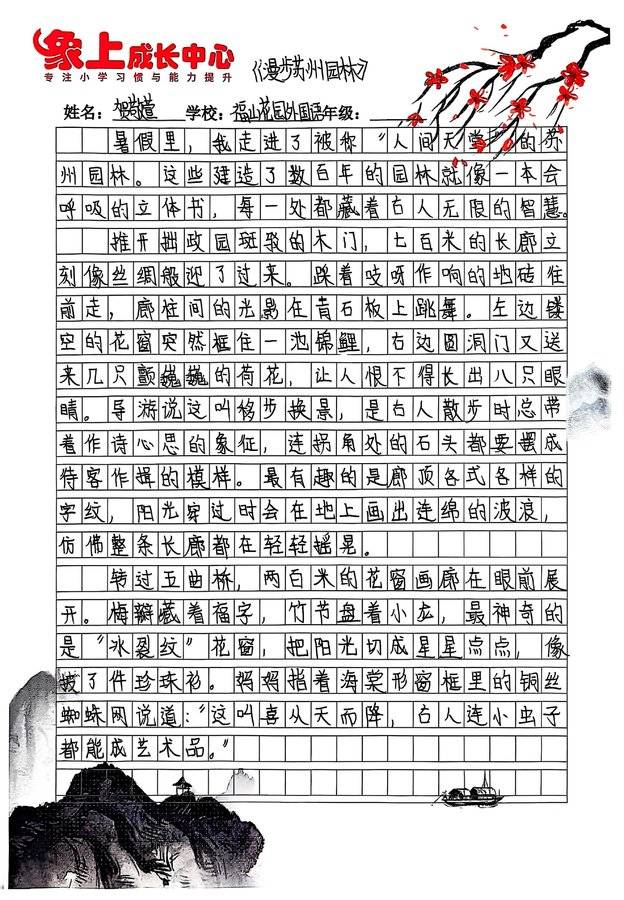 象上成长中心
专注小学习惯与能力提升
《漫步苏州园林》
姓名：贺 学校：福山花园外国语年级：
暑假里，我走进了被称“人间天堂”的苏
州园林。这些建造了数百年的园林就像一本会
呼吸的立体书，每一处都藏着古人无限的智慧。
推开拙政园斑驳的木门，七百米的长廊立
刻像丝绸般迎了过来。踩着吱呀作响的地砖往
前走，廊柱间的光影在青石板上跳舞。左边镂
空的花窗突然框住一池锦鲤，右边圆洞门又送
来几只颤巍巍的荷花，让人恨不得长出八只眼
睛。导游说这叫移步换景，是古人散步时总带
着作诗心思的象征，连拐角处的石头都要摆成
待客作揖的模样。最有趣的是廊顶各式各样的
字纹，阳光穿过时会在地上画出连绵的波浪，
仿佛整条长廊都在轻轻摇晃。
转过五曲桥，两百米的花窗画廊在眼前展
开。梅瓣藏着福字，竹节盘着小龙，最神奇的
是“冰裂纹”花窗，把阳光切成星星点点，像
披了件珍珠衫。妈妈指着海棠形窗框里的铜丝
蜘蛛网说道：“这叫喜从天而降，古人连小虫子
都能成艺术品。”